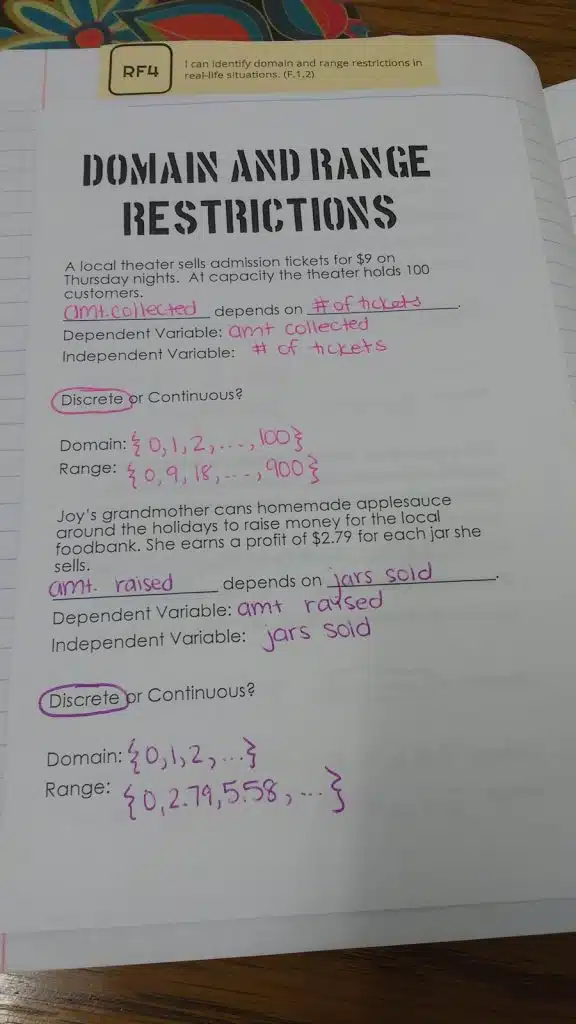 RF4
I can identify domain and range restrictions in
real-life situations. (F.1,2)
DOMAIN AND RANGE
RESTRICTIONS
A local theater sells admission tickets for $9 on
Thursday nights. At capacity the theater holds 100
customers.
amt.collected depends on # of tickets.
Dependent Variable: amt collected
Independent Variable: # of tickets
Discrete or Continuous?
Domain: { 0, 1, 2, ..., 100}
Range: { 0, 9, 18, ..., 900}
Joy's grandmother cans homemade applesauce
around the holidays to raise money for the local
foodbank. She earns a profit of $2.79 for each jar she
sells.
amt. raised depends on jars sold.
Dependent Variable: amt raised
Independent Variable: jars sold
Discrete or Continuous?
Domain: {0, 1, 2, ...}
Range: {0, 2.79, 5.58, ...}